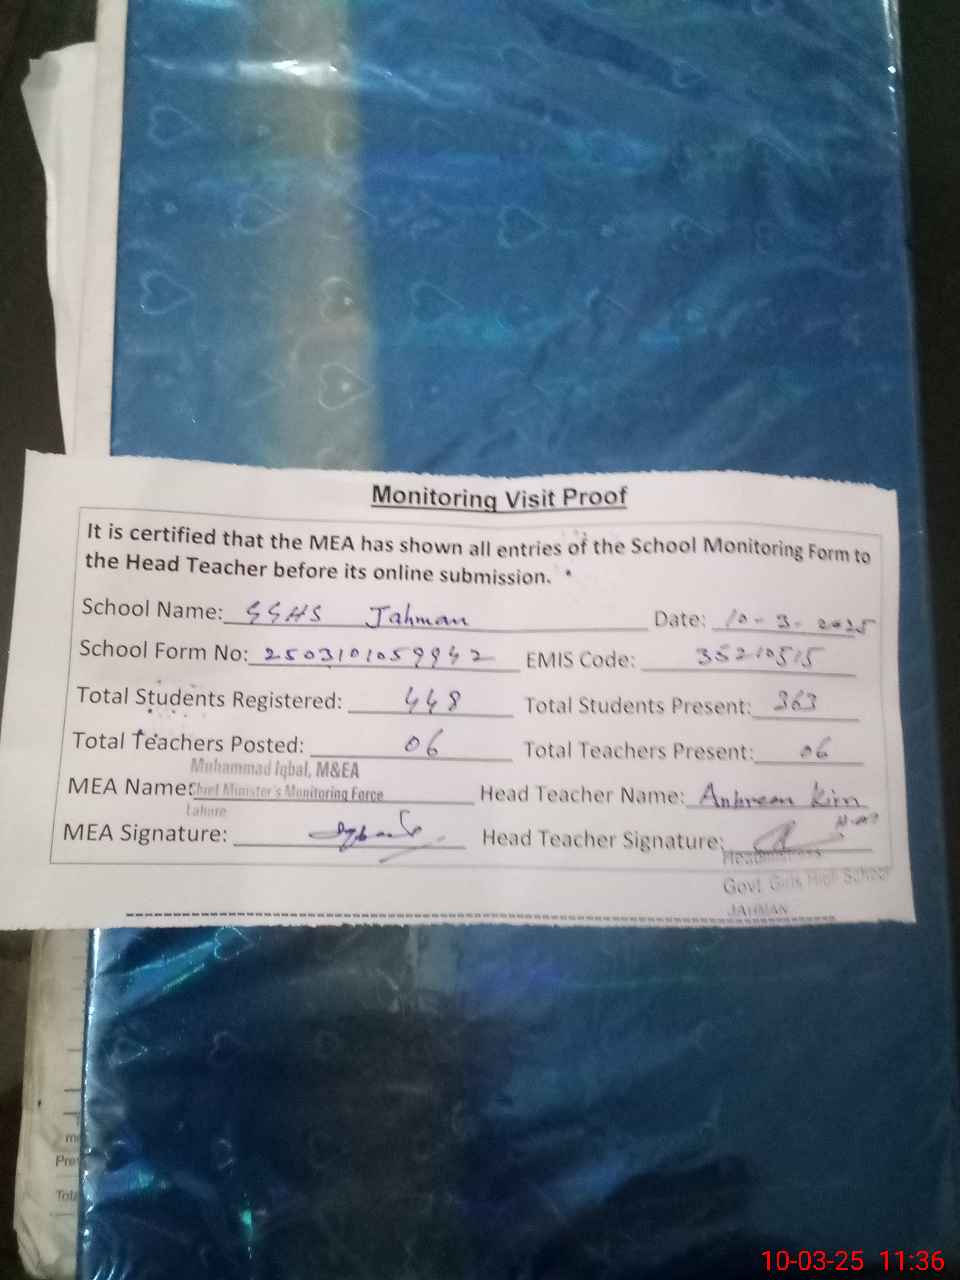 Monitoring Visit Proof
It is certified that the MEA has shown all entries of the School Monitoring Form to
the Head Teacher before its online submission.
School Name: GGHS Jahman Date: 10-3-2025
School Form No: 2503101059942 EMIS Code: 35210515
Total Students Registered: 448 Total Students Present: 363
Total Teachers Posted: 06 Total Teachers Present: 06
Muhammad Iqbal, M&EA
MEA Name: Chief Minister's Monitoring Force Head Teacher Name:
Lahore
MEA Signature: Head Teacher Signature:
Headmistress
Govt Girls High School
JAHMAN
Pre
Tota
10-03-25 11:36